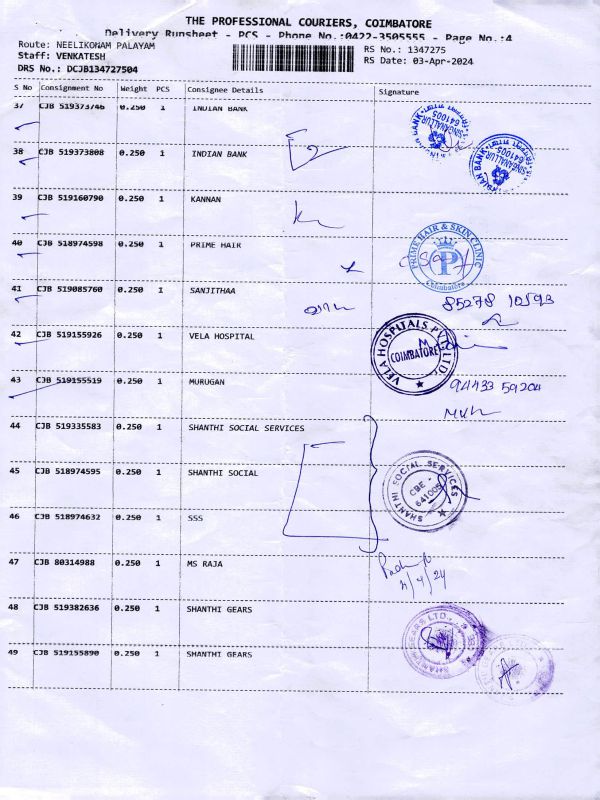 THE PROFESSIONAL COURIERS, COIMBATORE
Delivery Runsheet - DCS - Phone No.:0422-3505555 - Page No.:4
Route: NEELIKONAM PALAYAM
Staff: VENKATESH
DRS No.: DCJB134727504
RS No.: 1347275
RS Date: 03-Apr-2024
S No Consignment No Weight PCS Consignee Details Signature
37 CJB 519373746 0.250 1 INDIAN BANK
38 CJB 519373808 0.250 1 INDIAN BANK
641005
641005
39 CJB 519160790 0.250 1 KANNAN
40 CJB 518974598 0.250 1 PRIME HAIR
PRIME HAIR & SKIN CLINIC
P
Coimbatore
41 CJB 519085760 0.250 1 SANJITHAA
85278 10593
42 CJB 519155926 0.250 1 VELA HOSPITAL
VELA HOSPITALS PVT LTD
COIMBATORE
43 CJB 519155519 0.250 1 MURUGAN
94433 59204
44 CJB 519335583 0.250 1 SHANTHI SOCIAL SERVICES
45 CJB 518974595 0.250 1 SHANTHI SOCIAL
SHANTHI SOCIAL SERVICES
CBE -
641005
46 CJB 518974632 0.250 1 SSS
47 CJB 80314988 0.250 1 MS RAJA
48 CJB 519382636 0.250 1 SHANTHI GEARS
49 CJB 519155890 0.250 1 SHANTHI GEARS